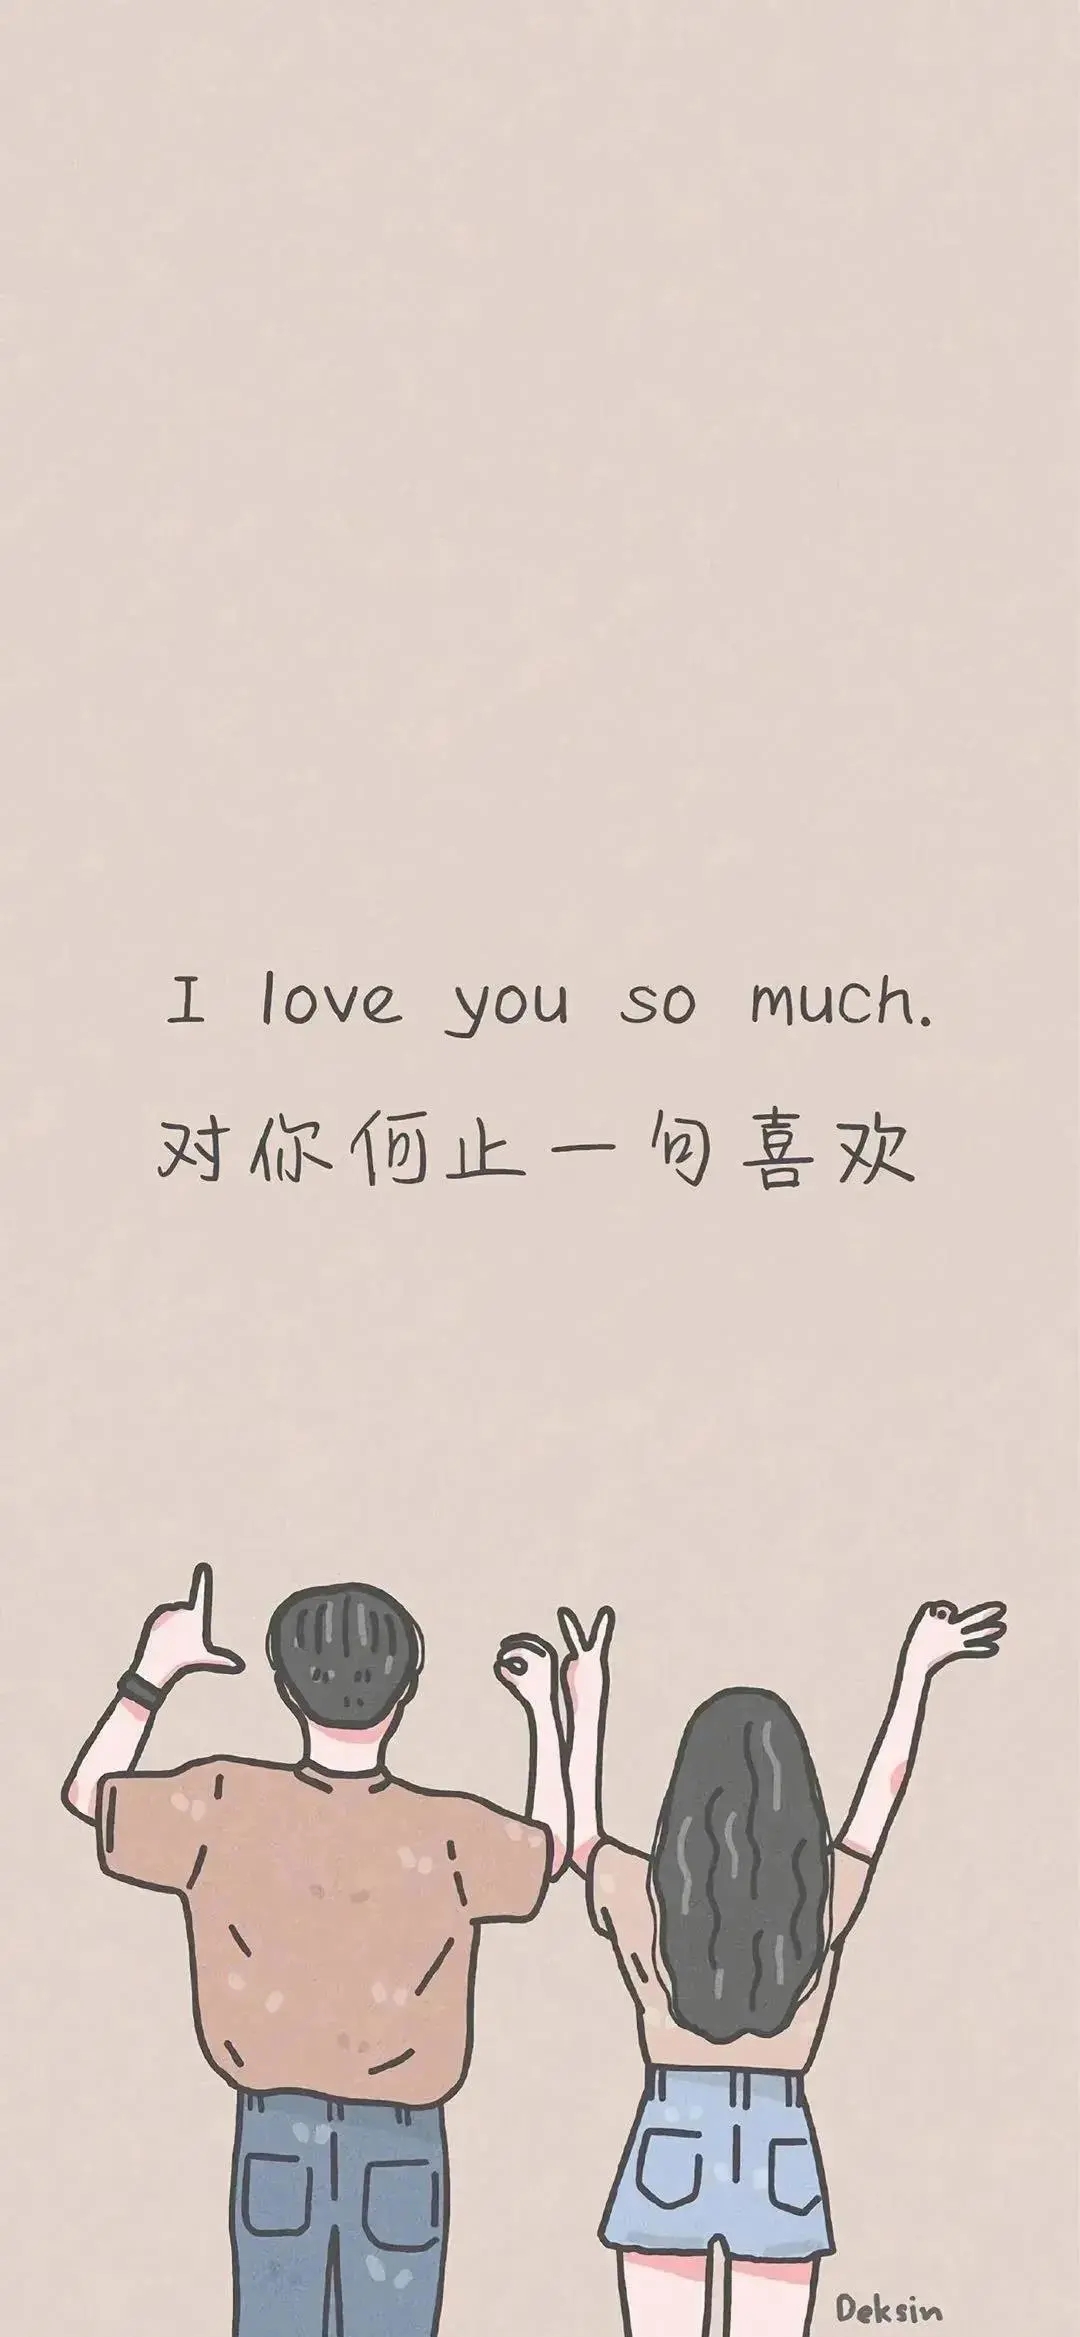 I love you so much.
对你何止一句喜欢
Deksin